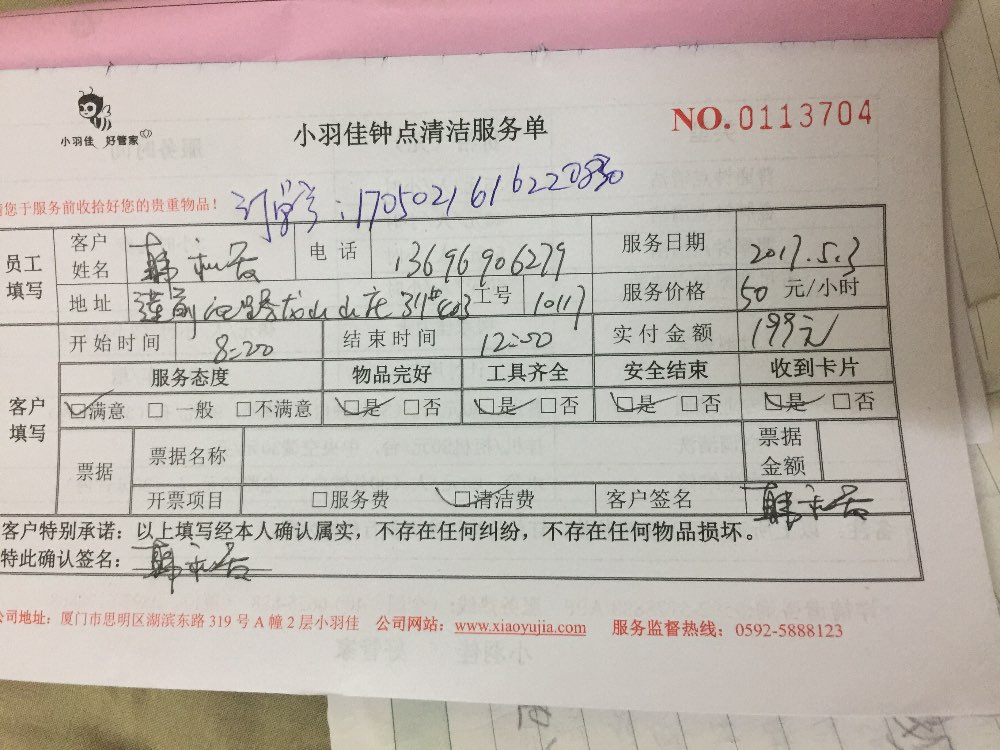 小羽佳 好管家
小羽佳钟点清洁服务单
NO.0113704
您于服务前收拾好您的贵重物品！
订单号：1705021616220830
员工填写 客户姓名 韩 电话 13696906279 服务日期 2017.5.3
地址 莲前西路龙山山庄 工号 10117 服务价格 50 元/小时
开始时间 8:20 结束时间 12:00 实付金额 199元
客户填写 服务态度 物品完好 工具齐全 安全结束 收到卡片
☑满意 □ 一般 □不满意 ☑是 □否 ☑是 □否 ☑是 □否 ☑是 □否
票据 票据名称 票据金额
开票项目 □服务费 ☑清洁费 客户签名 韩
客户特别承诺：以上填写经本人确认属实，不存在任何纠纷，不存在任何物品损坏。
特此确认签名：韩
公司地址：厦门市思明区湖滨东路 319 号 A 幢 2 层小羽佳 公司网站：www.xiaoyujia.com 服务监督热线：0592-5888123